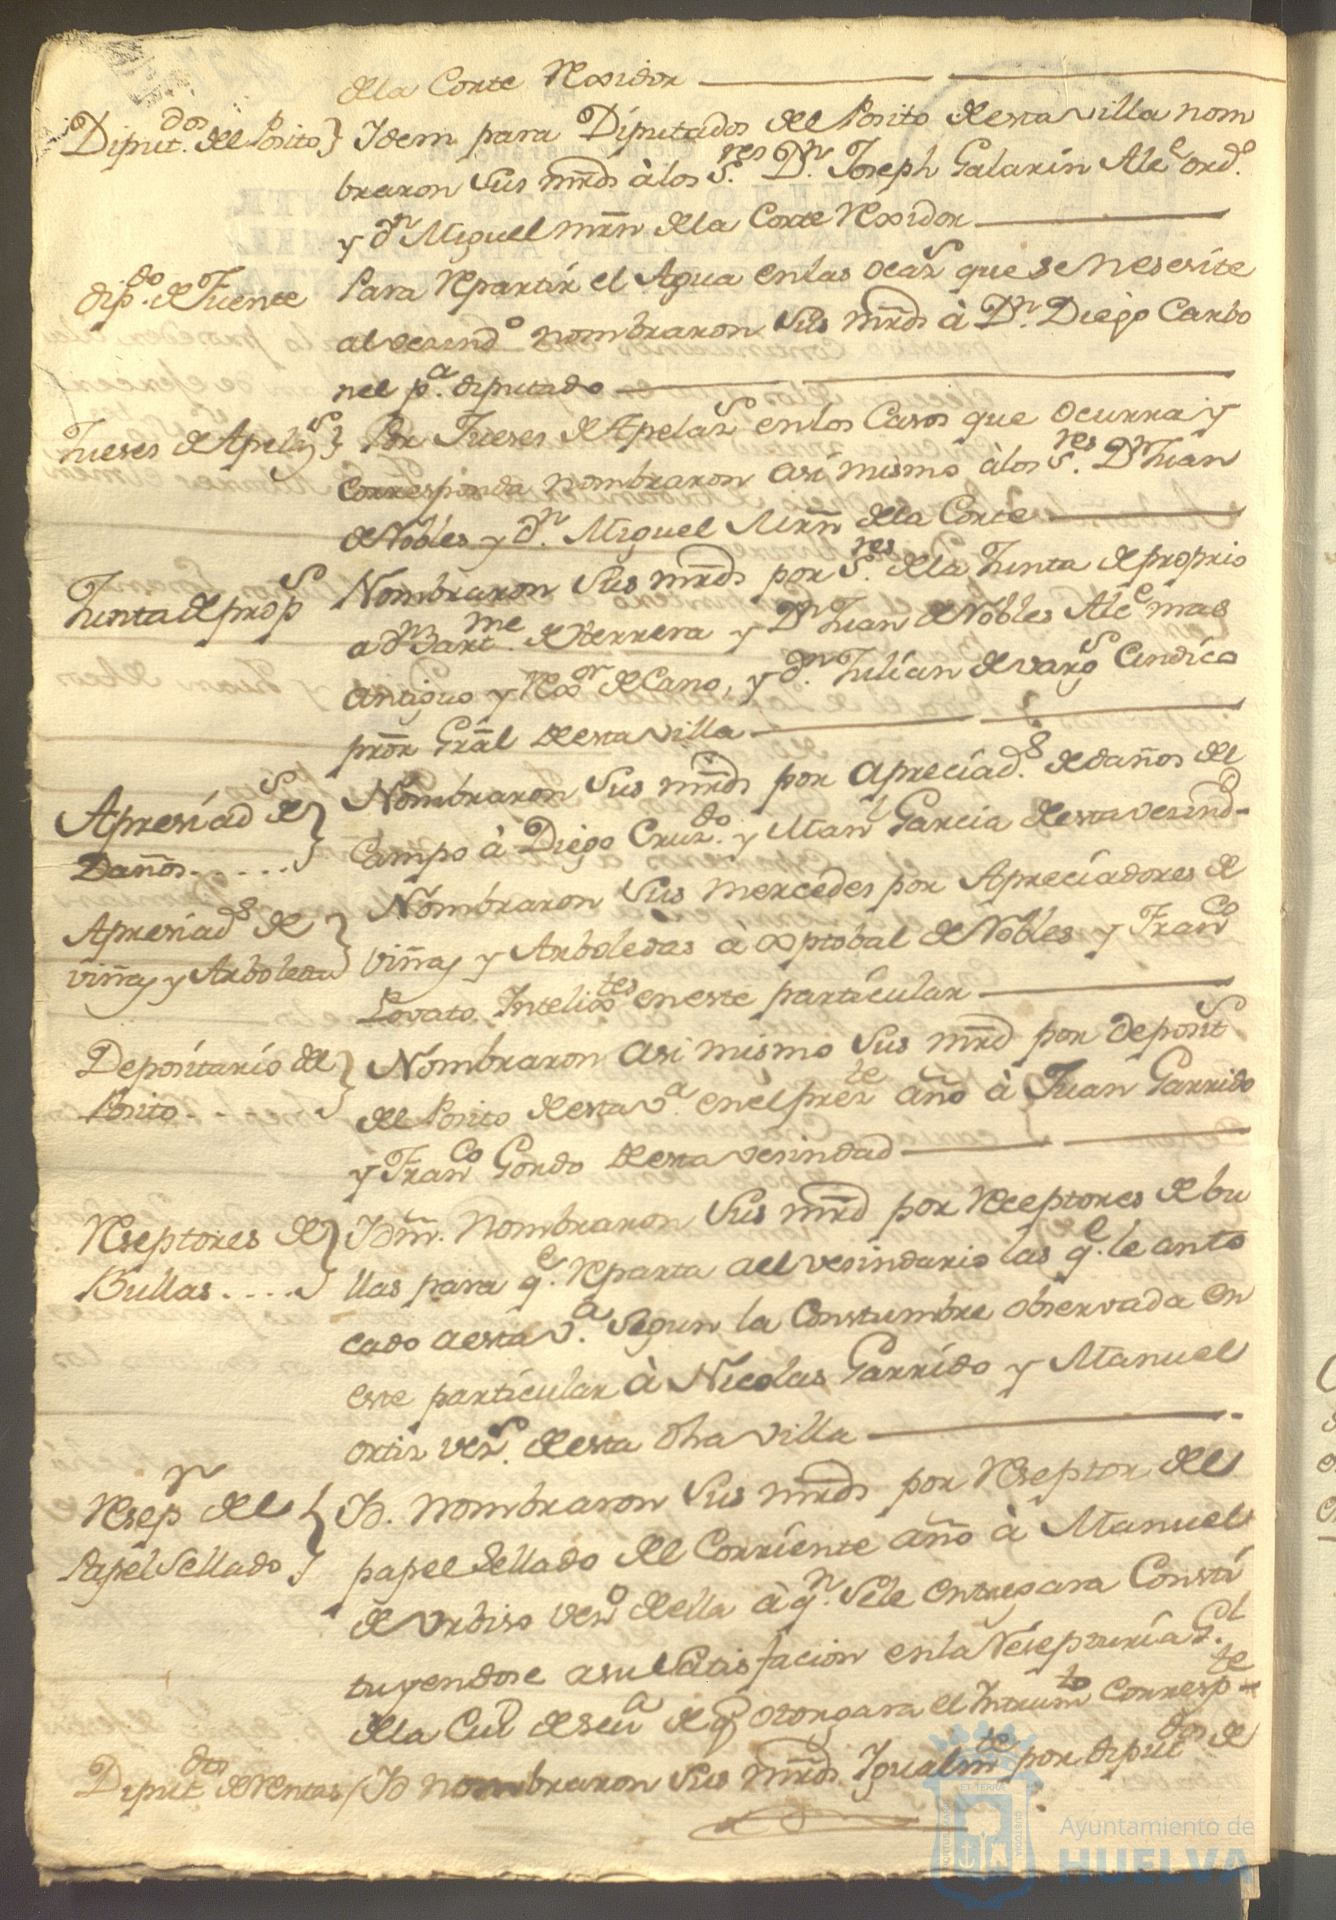 dela Corte Rexidor
Diput.dos del Posito} Idem para Diputados del Posito de esta villa nom
braron sus mrds à los S.res Dn. Joseph Galarin Alce ordo.
y dn Miguel mrñ dela Corte Rexidor
dip.do de Fuente Para Repartir el Agua en las ocazs que se neserite
al vesindo nombraron sus mrds à Dn. Diego Carbo
nel pa. diputado
Jueses de Apelazs} Por Jueses de Apelazs en los Casos que ocurra y
Corresponda nombraron asi mismo à los S.res Dn Juan
de Nobles y dn. Miguel Mrñ dela Corte
Junta de props Nombraron sus mrds por S.res dela Junta de proprio
a dn Bartme. de Herrera y Dn Juan de Nobles Alce mas
antiguo y Rexor de Cano, y dn. Julian de vargs Cindico
pror Gral de esta villa
Apresiads de} Nombraron sus mrds por apreciads. de daños del
Daños..... Campo à Diego Cruzdo. y Manl Garcia de esta vesindd
Apresiads de} Nombraron sus mercedes por Apreciadores de
viñas y Arboleda viñas y Arboledas à Xptobal de Nobles y Franco
Lovato Intelixtes en este particular
Depositario del} Nombraron asi mismo sus mrd por deposits
Posito.... del Posito de esta va. en el prezte año à Juan Garrido
y Franco Gordo de esta vesindad
Reseptores de} Idm. nombraron sus mrd por Receptores de bu
Bullas.... llas para qe. Reparta all vesindario las qe. le an to
cado a esta va. segun la Constumbre observada en
este particular à Nicolas Garrido y Manuel
ortiz vezs. de esta dha villa
Resepr del} Id. nombraron sus mrds por Reseptor del
Papel Sellado papel Sellado del Corriente año à Manuel
de Urbiso veso de ella à qn. se le entregara Consti
tuyendose a su Satisfacion en la Resepturia Gl.
dela Ciud de seua de q otorgara el Intrumto correspte
Diputdos de Rentas / Id nombraron sus mrds Igualmte por diputdos de
Ayuntamiento de
HUELVA